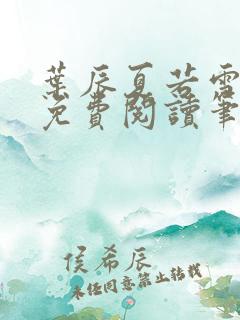 葉辰夏若雪
免費閱讀筆
侯希辰
未經同意禁止轉載